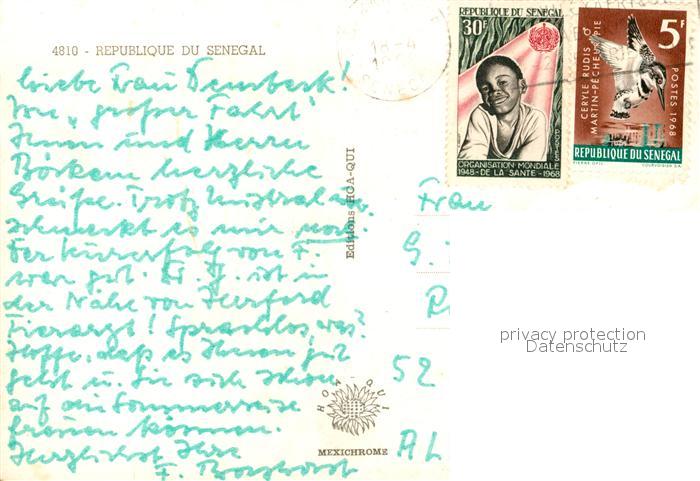 4810 - REPUBLIQUE DU SENEGAL
Liebe Frau
Von "großer Fahrt"
Ihnen und Herrn
herzliche
Grüße. Trotz
schmeckt es mir
Der Kurerfolg von F.
war gut. Fr. J. ist in
der Nähe von Herford
Tierarzt! Sprachlos, was?
Hoffe, daß es Ihnen gut
geht u. Sie sich schon
auf die Sommerreise
freuen können.
Herzlichst Ihre
F.
Editions HOA-QUI
HOA-QUI
MEXICHROME
REPUBLIQUE DU SENEGAL
30F
POSTES
ORGANISATION MONDIALE
1948-DE LA SANTE-1968
5F
CERYLE RUDIS ♂
MARTIN-PÊCHEUR PIE
POSTES 1968
REPUBLIQUE DU SÉNÉGAL
PIERRE OPIC
COURVOISIER S.A.
Frau
G.
52
AL
privacy protection
Datenschutz